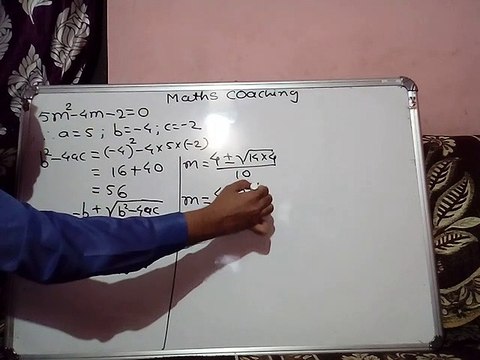 Maths coaching
5m²-4m-2=0
∴ a=5 ; b=-4 ; c=-2
b²-4ac = (-4)²-4×5×(-2)
= 16+40
= 56
-b ± √b²-4ac
m = 4 ± √14×4 / 10
m =